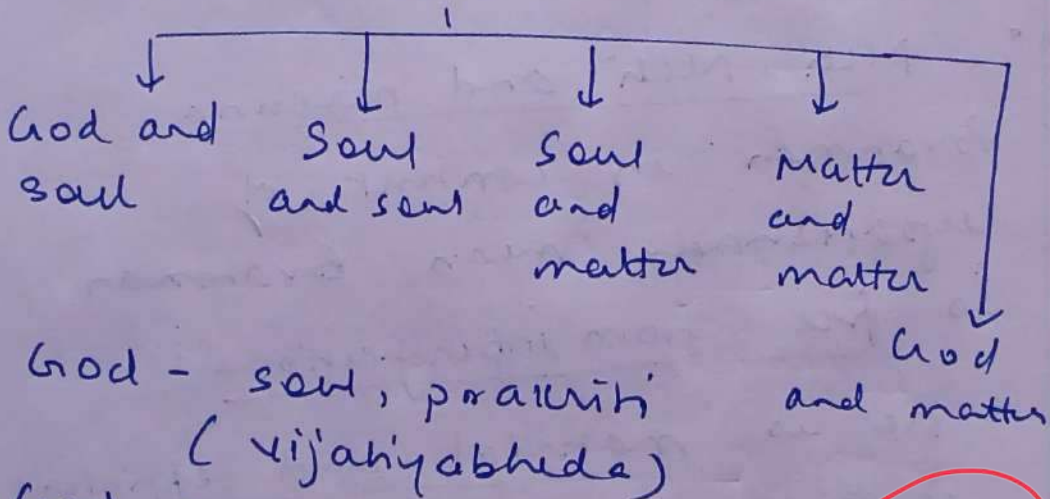 God and soul
Soul and soul
Soul and matter
Matter and matter
God and matter
God - soul, prakriti
( vijatiyabheda )